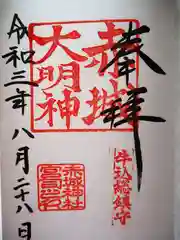 奉拝
赤城
大明神
牛込総鎮守
赤城神社
宮司之印
令和三年八月二十八日